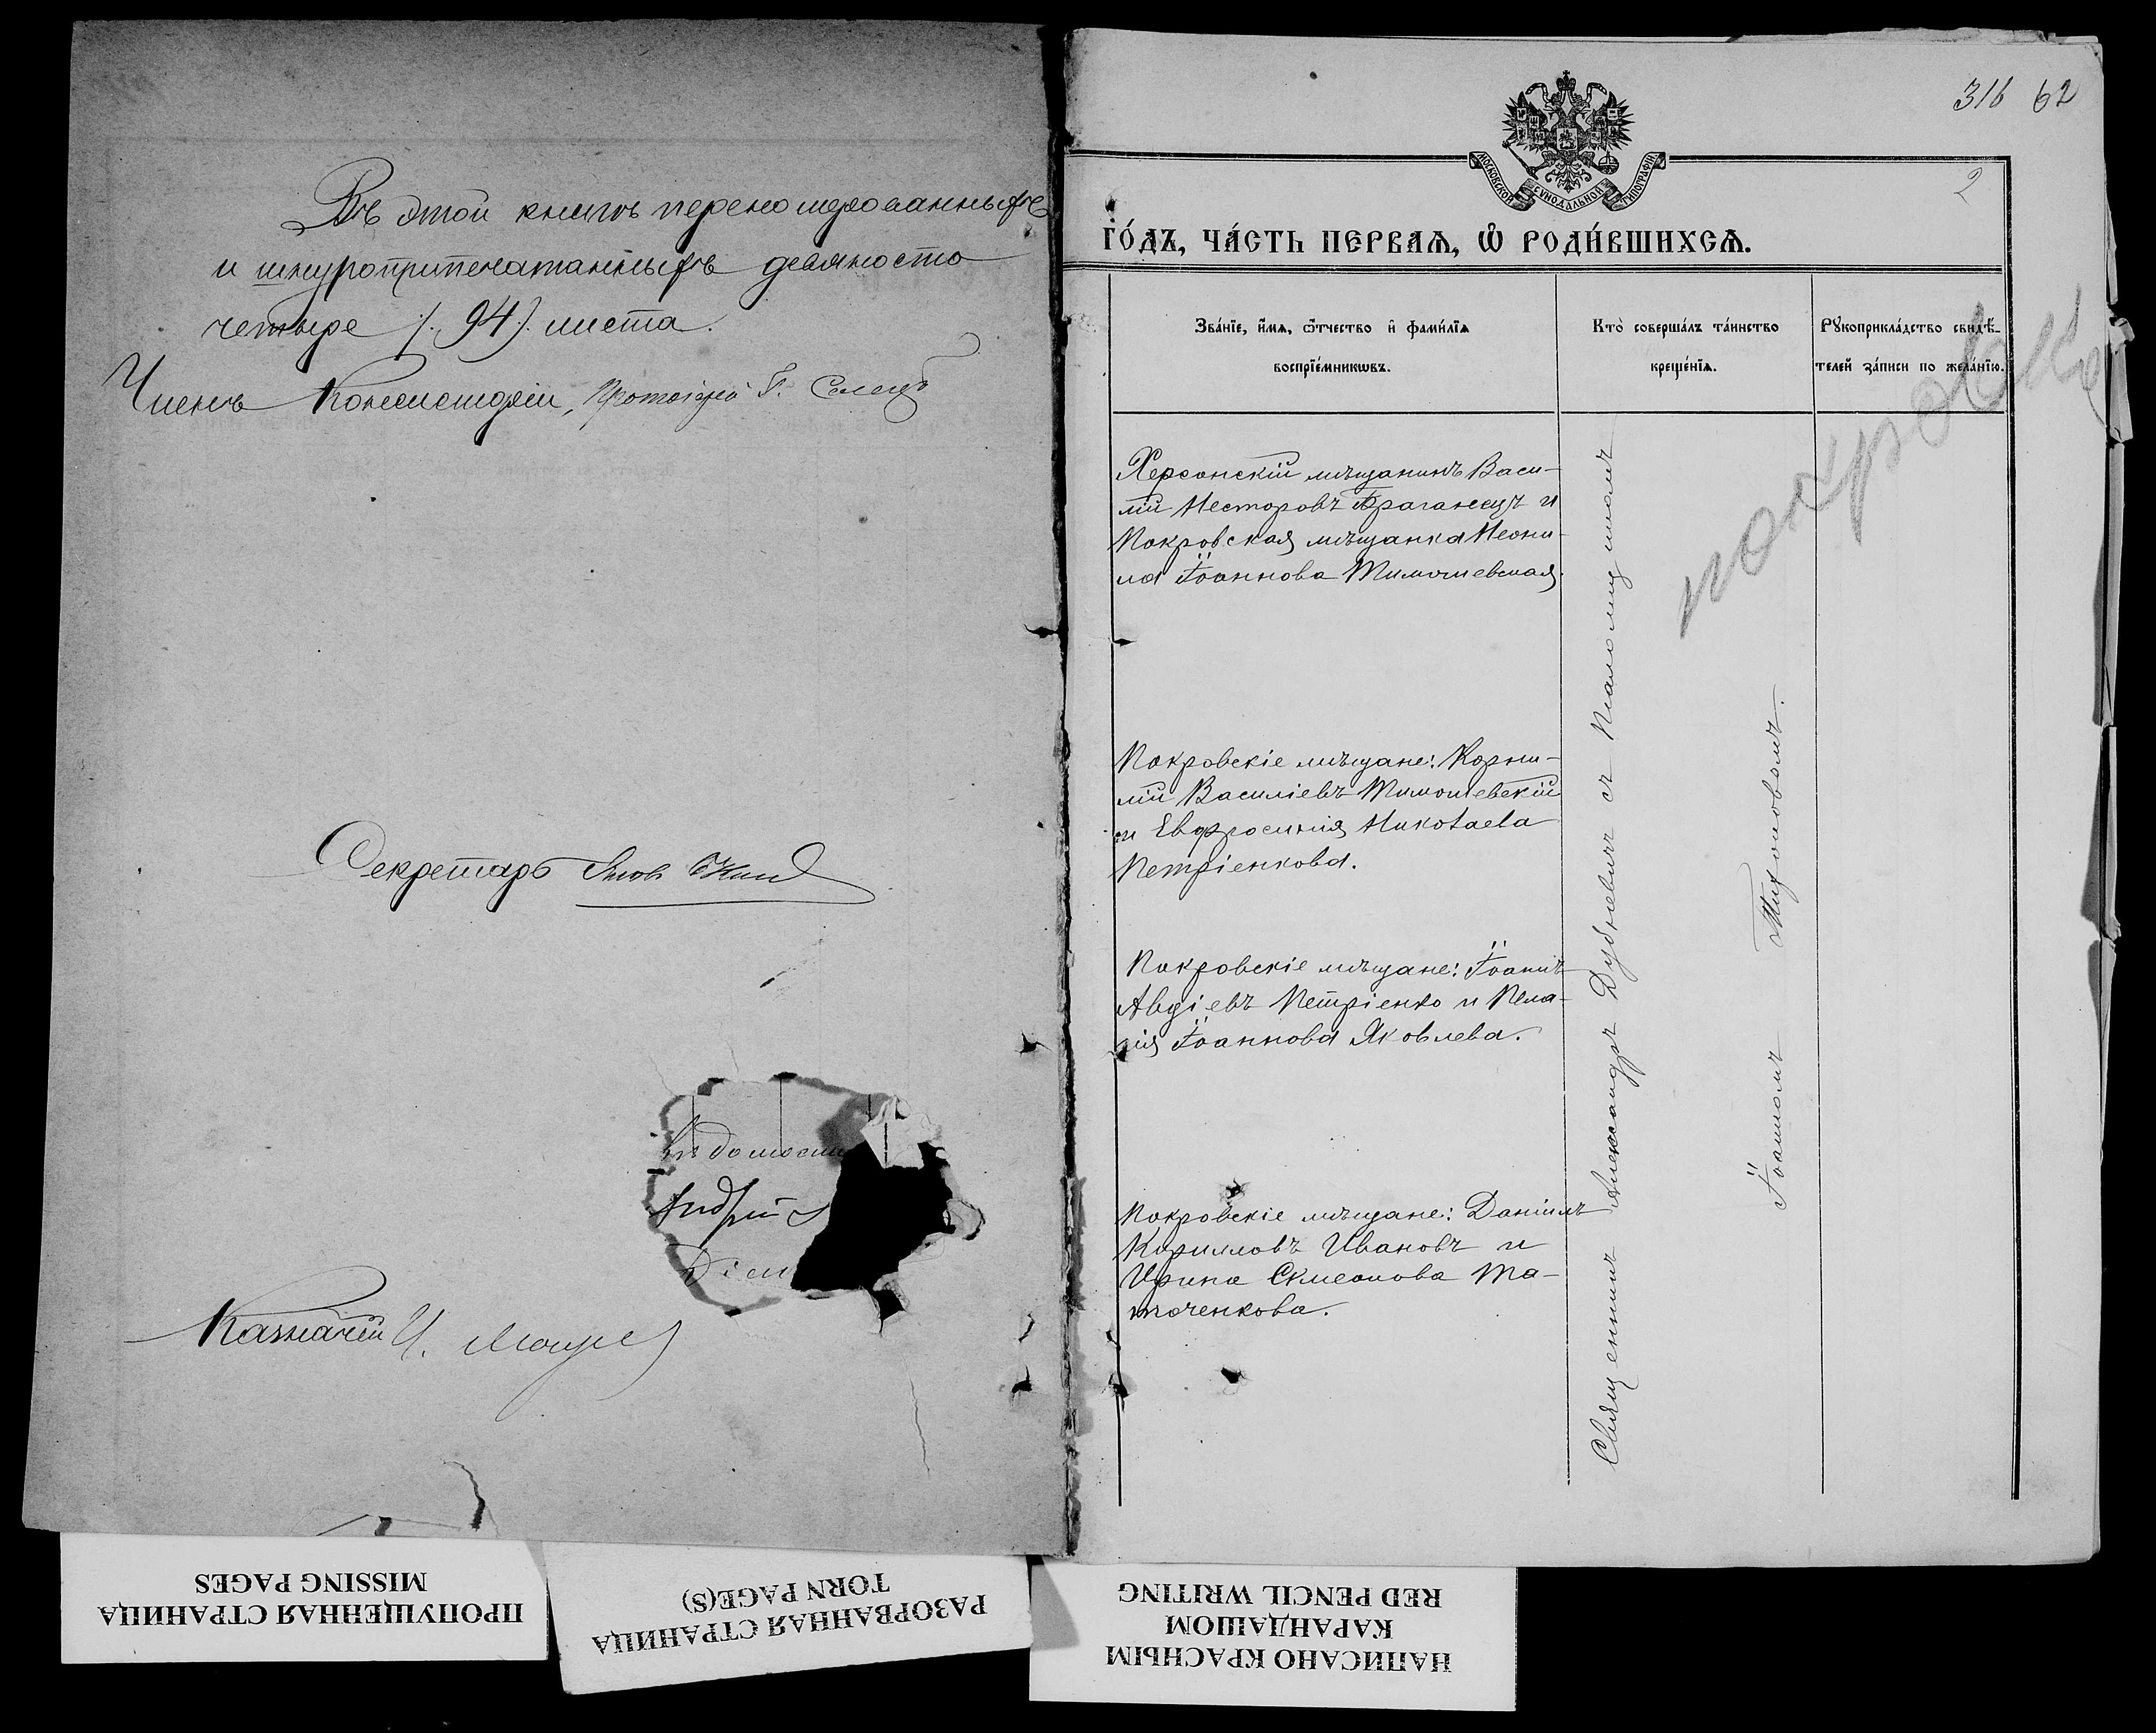 Въ этой книгѣ перенумерованныхъ
и шнуроприпечатанныхъ девяносто
четыре /. 94 /. листа.
Членъ Консисторіи, Протоіерей
Секретарь
Андрей
Казначей И.
316 62
МОСКОВСКОЙ СѴНОДАЛЬНОЙ ТИПОГРАФІИ
2
го́дъ, ча́сть пе́рваѧ, ѡ҆ роди́вшихсѧ.
Зва́нїе, и҆́мѧ, ѻ҆́тчество и҆ фами́лїѧ
воспрїе́мникѡвъ.
Кто̀ соверша́лъ та́инство
креще́нїѧ.
Рꙋкоприкла́дство свидѣ́-
телей за́писи по жела́нїю.
покровск
Херсонскій мѣщанинъ Васи-
лій Несторовъ Браганецъ и
Покровская мѣщанка Неони-
ла Іоаннова Тимошевская.
Покровскіе мѣщане: Корни-
лій Василіевъ Тимошевскій
и Евфросинія Николаева
Петріенкова.
Покровскіе мѣщане: Іоаннъ
Авдіевъ Петріенко и Пела-
гія Іоаннова Яковлева.
Покровскіе мѣщане: Даніилъ
Кирилловъ Ивановъ и
Ирина Симеонова
Священникъ Александръ Дубневичъ съ Псаломщикомъ
Іоанномъ Тихоновымъ.
ПРОПУЩЕННАЯ СТРАНИЦА
MISSING PAGES
РАЗОРВАННАЯ СТРАНИЦА
TORN PAGE(S)
НАПИСАНО КРАСНЫМ
КАРАНДАШОМ
RED PENCIL WRITING